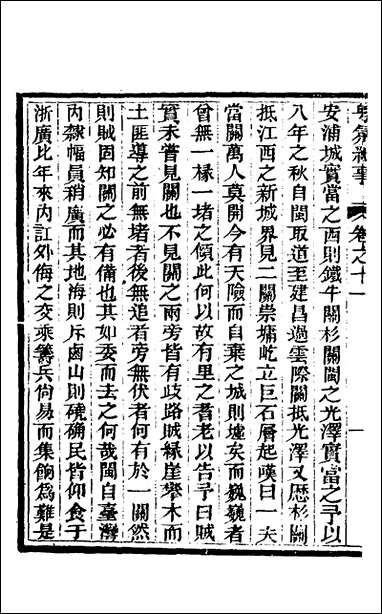 粵氛紀事 卷之十一 一
安浦城實當之西則鐵牛關杉關閩之光澤實當之予以
八年之秋自閩取道至建昌過雲際關抵光澤又歷杉關
抵江西之新城界見二關崇墉屹立巨石層起嘆曰一夫
當關萬人莫開今有天險而自棄之城則墟矣而巍巍者
曾無一椽一堵之傾此何以故有里之耆老以告予曰賊
實未嘗見關也不見關之兩旁皆有歧路賊緣崖攀木而
土匪導之前無堵者後無追者旁無伏者何有於一關然
則賊固知關之必有備也其如委而去之何哉閩自臺灣
內隸幅員稍廣而其地海則斥鹵山則磽确民皆仰食于
浙廣比年來內訌外侮之交乘籌兵尚易而集餉為難是